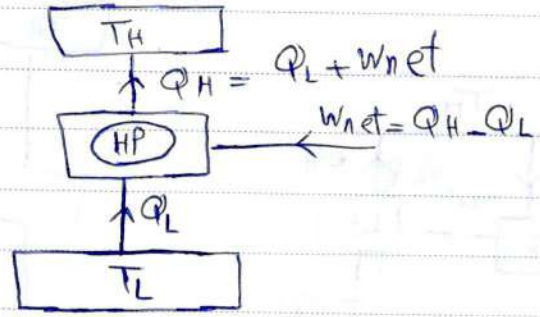 TH
QH = QL + Wnet
HP
Wnet = QH - QL
QL
TL